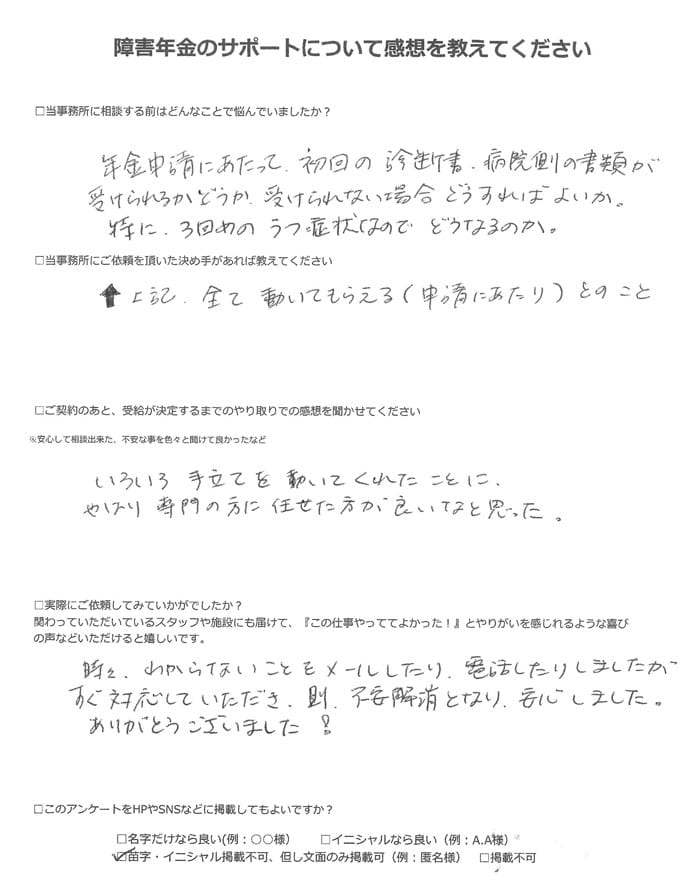 障害年金のサポートについて感想を教えてください
□当事務所に相談する前はどんなことで悩んでいましたか？
年金申請にあたって、初回の診断書、病院側の書類が
受けられるかどうか、受けられない場合どうすればよいか。
特に、3回めのうつ症状なのでどうなるのか。
□当事務所にご依頼を頂いた決め手があれば教えてください
⬆上記、全て動いてもらえる(申請にあたり)とのこと
□ご契約のあと、受給が決定するまでのやり取りでの感想を聞かせてください
※安心して相談出来た、不安な事を色々と聞けて良かったなど
いろいろ手立てを動いてくれたことに、
やはり専門の方に任せた方が良いなと思った。
□実際にご依頼してみていかがでしたか？
関わっていただいているスタッフや施設にも届けて、『この仕事やっててよかった！』とやりがいを感じれるような喜び
の声などいただけると嬉しいです。
時々、わからないことをメールしたり、電話したりしましたが
すぐ対応していただき、即、不安解消となり、安心しました。
ありがとうございました！
□このアンケートをHPやSNSなどに掲載してもよいですか？
□名字だけなら良い(例：〇〇様） □イニシャルなら良い（例：A.A様）
☑苗字・イニシャル掲載不可、但し文面のみ掲載可（例：匿名様） □掲載不可